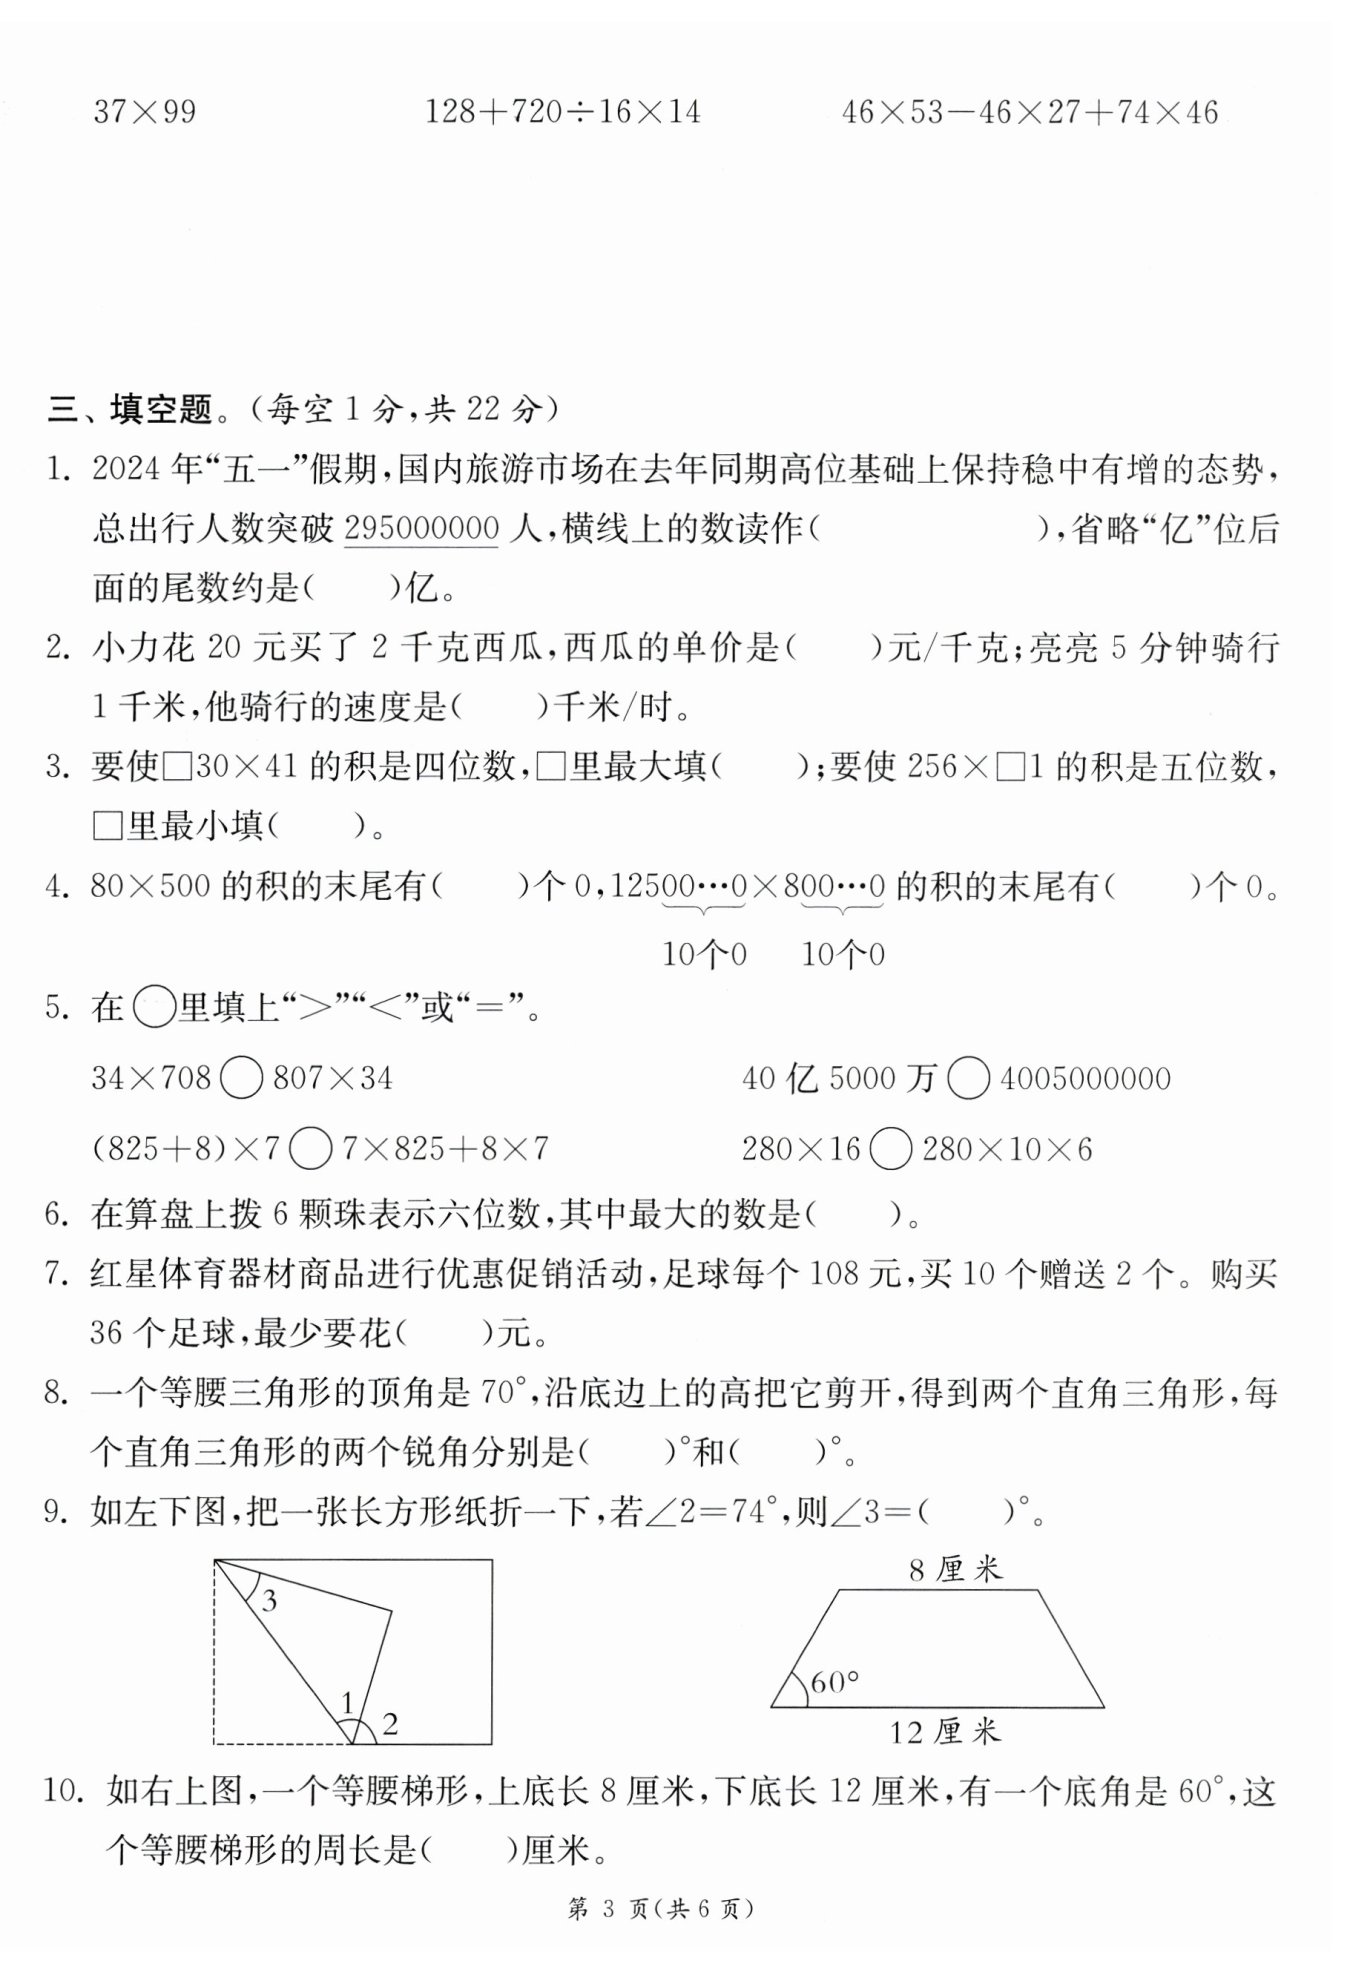 37×99 128+720÷16×14 46×53-46×27+74×46
三、填空题。(每空1分,共22分)
1. 2024年“五一”假期,国内旅游市场在去年同期高位基础上保持稳中有增的态势,
总出行人数突破 295000000 人,横线上的数读作( ),省略“亿”位后
面的尾数约是( )亿。
2. 小力花 20 元买了 2 千克西瓜,西瓜的单价是( )元/千克;亮亮 5 分钟骑行
1千米,他骑行的速度是( )千米/时。
3. 要使□30×41的积是四位数,□里最大填( );要使 256×□1的积是五位数,
□里最小填( )。
4. 80×500的积的末尾有( )个0,12500…0×800…0的积的末尾有( )个0。
10个0 10个0
5. 在○里填上“>”“<”或“=”。
34×708○807×34 40亿5000万○4005000000
(825+8)×7○7×825+8×7 280×16○280×10×6
6. 在算盘上拨6颗珠表示六位数,其中最大的数是( )。
7. 红星体育器材商品进行优惠促销活动,足球每个108元,买10个赠送2个。购买
36个足球,最少要花( )元。
8. 一个等腰三角形的顶角是70°,沿底边上的高把它剪开,得到两个直角三角形,每
个直角三角形的两个锐角分别是( )°和( )°。
9. 如左下图,把一张长方形纸折一下,若∠2=74°,则∠3=( )°。
8厘米
3
60°
1
2
12厘米
10. 如右上图,一个等腰梯形,上底长8厘米,下底长12厘米,有一个底角是60°,这
个等腰梯形的周长是( )厘米。
第 3 页(共6页)